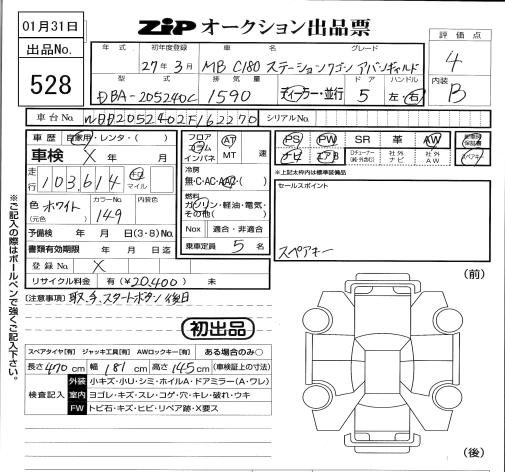 01月31日
出品No.
528
ZIP オークション出品票
評価点
4
内装
B
年式 初年度登録 車名 グレード
27年3月 MB C180 ステーションワゴン アバンギャルド
型式 排気量 ドア ハンドル
DBA-205240C 1590 ディーラー・並行 5 左・右
車台No. WDD2052402F162270 シリアルNo.
車歴 自家用・レンタ・( )
車検 X 年 月
走行 103,614 キロ マイル
色 ホワイト (元色) カラーNo. 149 内装色
予備検 年 月 日(3・8)No.
書類有効期限 年 月 日迄
登録No. X
リサイクル料 有(¥20,400) 未
フロア コラム インパネ AT MT 速
冷房 無・C・AC・A/C2・( )
燃料 ガソリン・軽油・電気・その他( )
Nox 適合・非適合
乗車定員 5 名
PS PW SR 革 AW
ナビ エアB Dチューナー 社外ナビ 社外AW スペアキー
※上記太枠内は標準装備品
セールスポイント
スペアキー
[注意事項] 取、手、スタートボタン後日
初出品
スペアタイヤ[有] ジャッキ工具[有] AWロックキー[有] ある場合のみ○
長さ 470 cm 幅 181 cm 高さ 145 cm (車検証上の寸法)
検査記入
外装 小キズ・小U・シミ・ホイルA・ドアミラー(A・ワレ)
室内 ヨゴレ・キズ・スレ・コゲ・穴・キレ・破れ・ウキ
FW トビ石・キズ・ヒビ・リペア跡・X要ス
(前)
(後)
※ご記入の際はボールペンで強くご記入下さい。